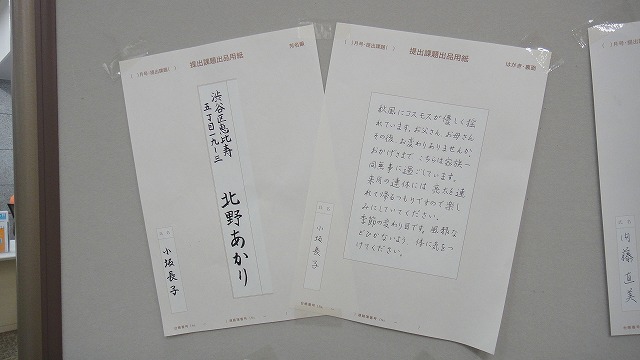 ( )月号・提出課題( )
提出課題出品用紙
宛名面
渋谷区恵比寿
五丁目一九ー三
北野あかり
氏名
小坂長子
( )月号・提出課題( )
提出課題出品用紙
はがき・裏面
秋風にコスモスが優しく揺
れています。お父さん、お母さん
その後、お変わりありませんか。
おかげさまで こちらは家族一
同無事に過ごしています。
来月の連休には 亮太を連
れて帰るつもりですので楽し
みにしていてください。
季節の変わり目です。風邪な
どひかないよう 体に気をつ
けてください。
氏名
小坂長子
氏名
内藤直美